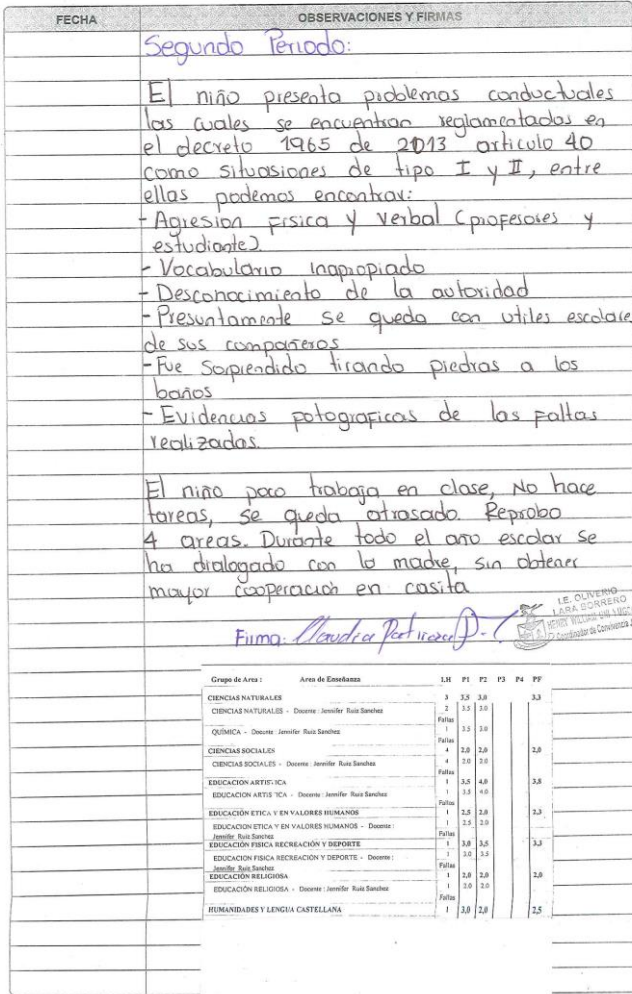 FECHA
OBSERVACIONES Y FIRMAS
Segundo Periodo:
El niño presenta problemas conductuales
las cuales se encuentran reglamentadas en
el decreto 1965 de 2013 articulo 40
como situasiones de tipo I y II, entre
ellas podemos encontrar:
- Agresion fisica y verbal (profesores y
estudiante)
- Vocabulario inapropiado
- Desconocimiento de la autoridad
- Presuntamente se queda con utiles escolare
de sus compañeros
- Fue Sorprendido tirando piedras a los
baños
- Evidencias fotograficas de las faltas
realizadas.
El niño poco trabaja en clase, No hace
tareas, se queda atrasado. Reprobo
4 areas. Durante todo el año escolar se
ha dialogado con la madre, sin obtener
mayor cooperacion en casita
Firma: Claudia Patricia
I.E. OLIVERIO
LARA BORRERO
HENRY WILLIAM
Coordinador de Convivencia
Grupo de Area : Area de Enseñanza I.H P1 P2 P3 P4 PF
CIENCIAS NATURALES 3 3,5 3,0 3,3
CIENCIAS NATURALES - Docente : Jennifer Ruiz Sanchez 2 3.5 3.0
Fallas
QUÍMICA - Docente : Jennifer Ruiz Sanchez 1 3.5 3.0
Fallas
CIENCIAS SOCIALES 4 2,0 2,0 2,0
CIENCIAS SOCIALES - Docente : Jennifer Ruiz Sanchez 4 2.0 2.0
Fallas
EDUCACION ARTISTICA 1 3,5 4,0 3,8
EDUCACION ARTISTICA - Docente : Jennifer Ruiz Sanchez 1 3.5 4.0
Fallas
EDUCACIÓN ETICA Y EN VALORES HUMANOS 1 2,5 2,0 2,3
EDUCACION ETICA Y EN VALORES HUMANOS - Docente : 1 2.5 2.0
Jennifer Ruiz Sanchez Fallas
EDUCACION FISICA RECREACIÓN Y DEPORTE 1 3,0 3,5 3,3
EDUCACION FISICA RECREACIÓN Y DEPORTE - Docente : 1 3.0 3.5
Jennifer Ruiz Sanchez Fallas
EDUCACIÓN RELIGIOSA 1 2,0 2,0 2,0
EDUCACIÓN RELIGIOSA - Docente : Jennifer Ruiz Sanchez 1 2.0 2.0
Fallas
HUMANIDADES Y LENGUA CASTELLANA 1 3,0 2,0 2,5